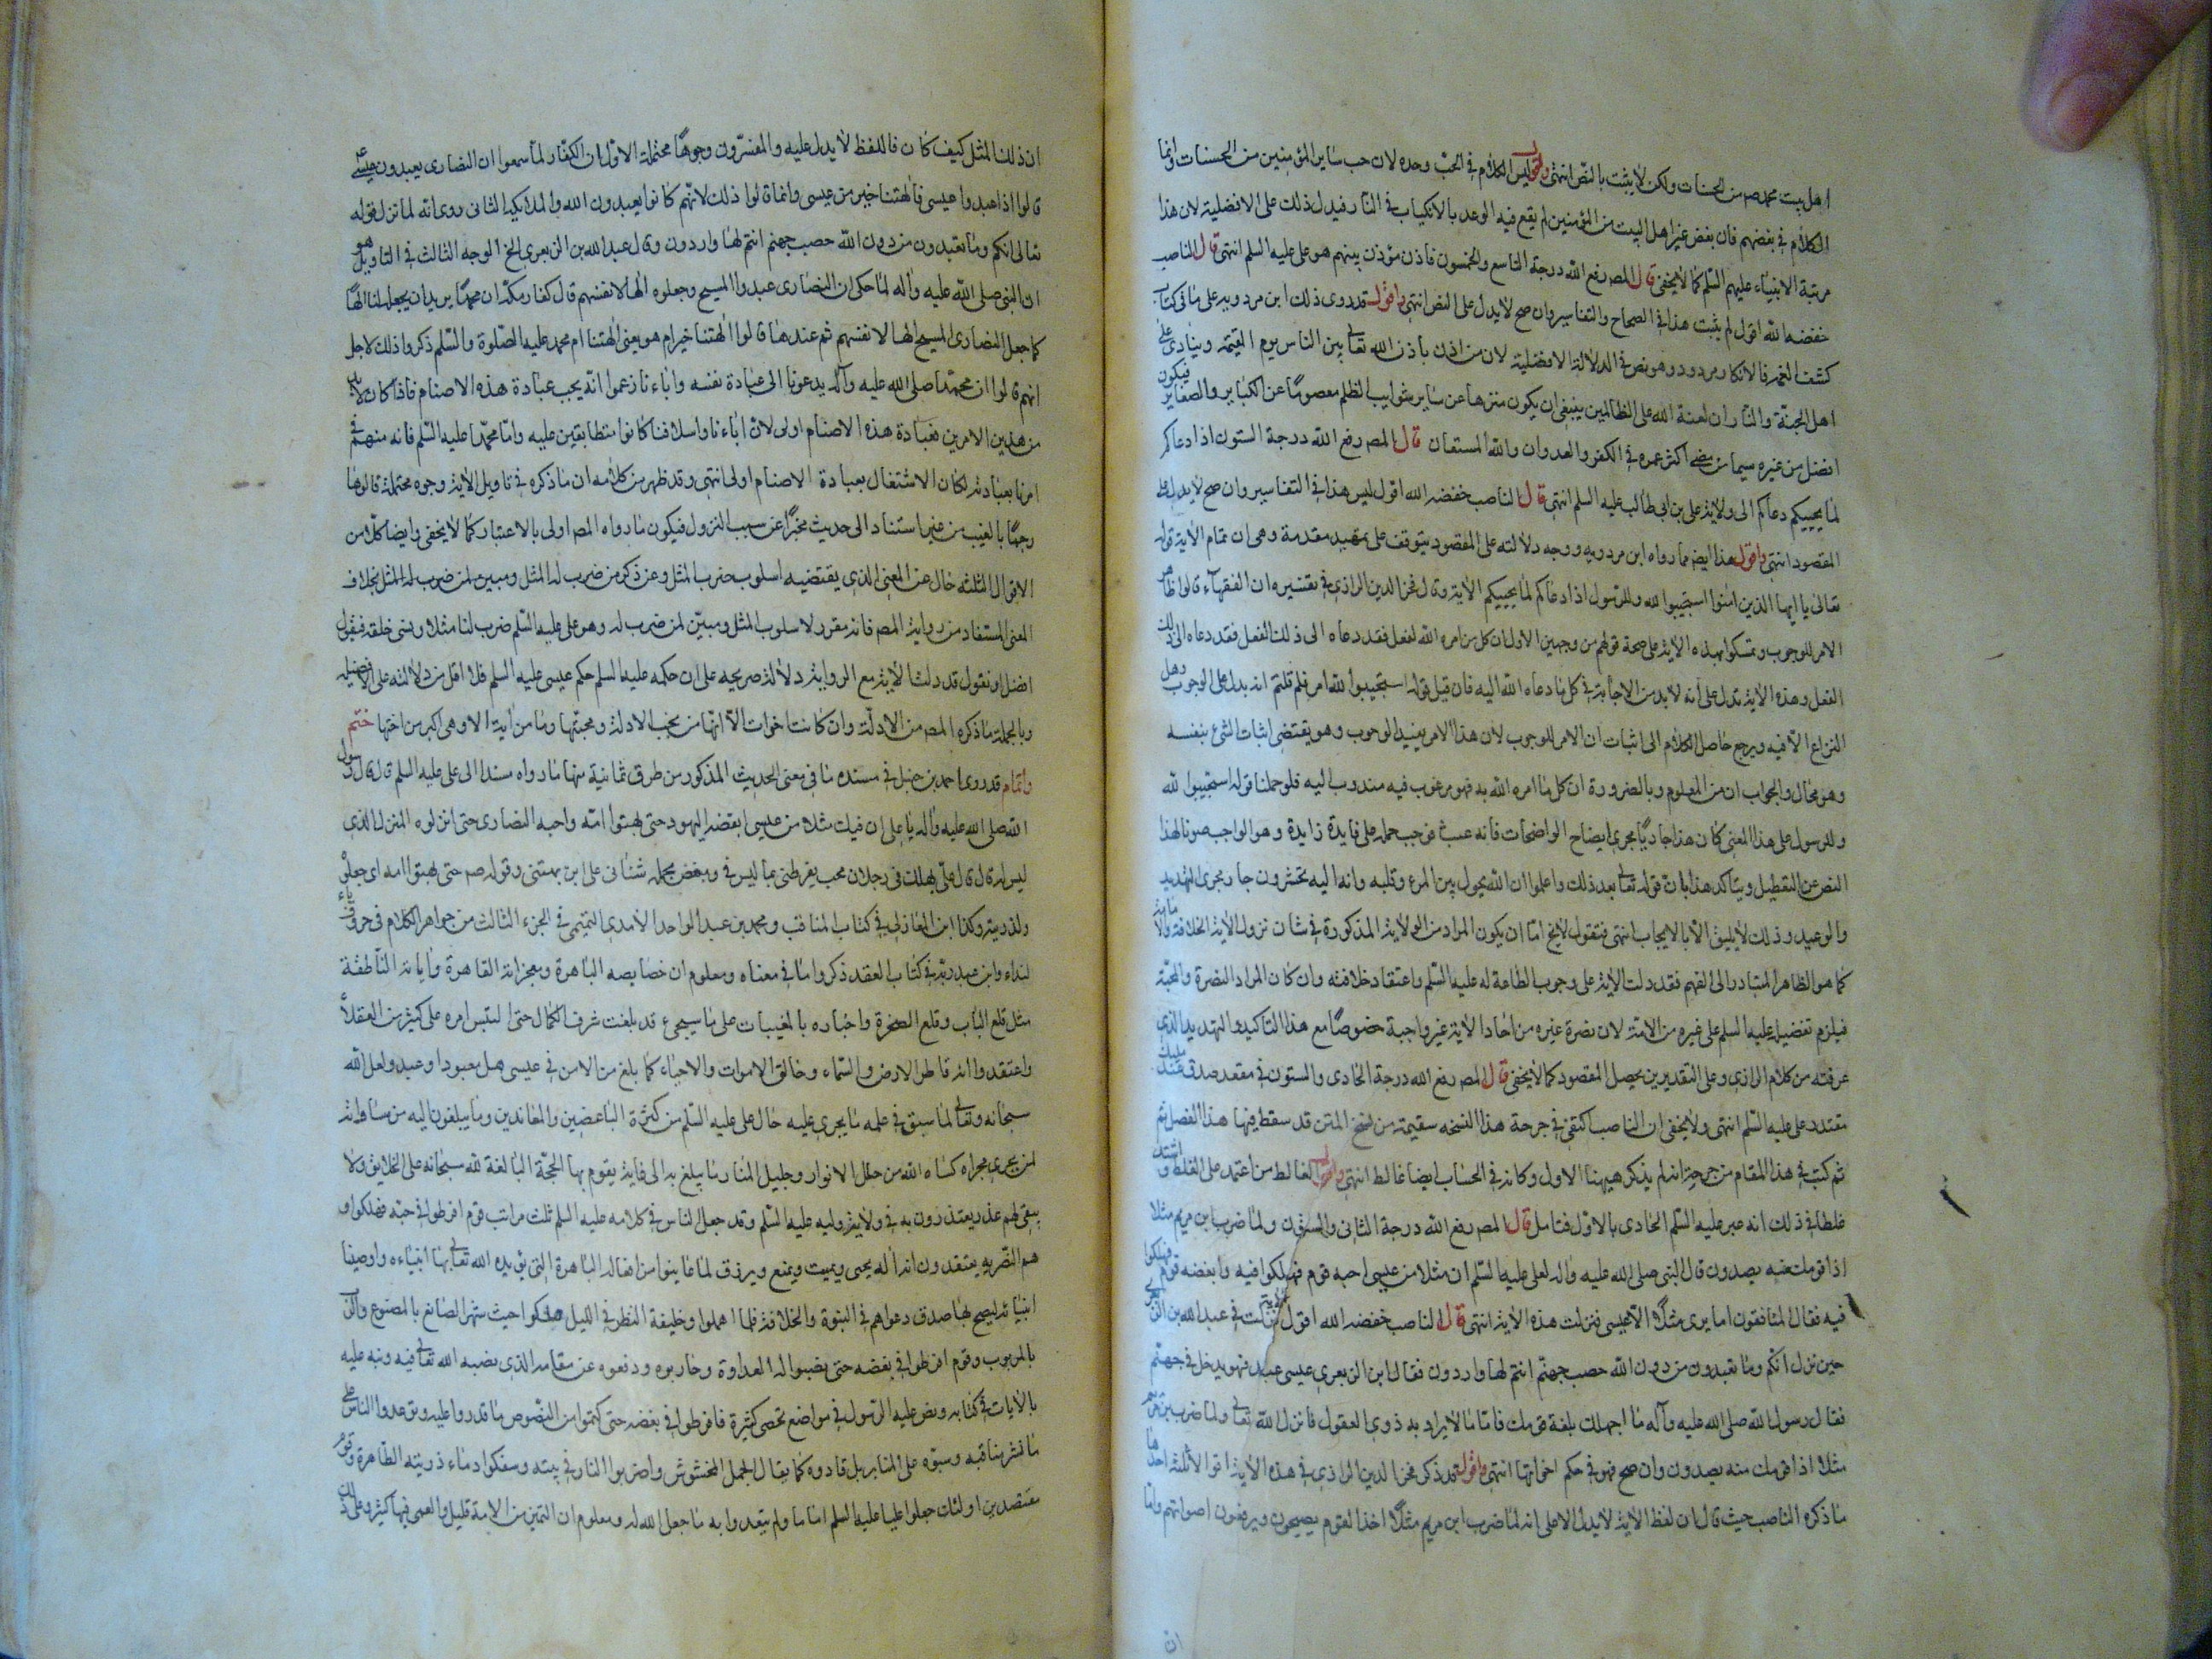 اهل بيت محمد صم من الحسنات ولكن لا يثبت بالنص انتهى واقول ليس الكلام في الحب وحده لان حب ساير المؤمنين من الحسنات وانما
الكلام في بغضهم فان بغض غير اهل البيت من المؤمنين لم يقع فيه الوعد بالانكباب في النار فيدل ذلك على الافضلية لان هذا
مرتبة الانبياء عليهم السلم كما لا يخفى قال المصر رفع الله درجة التاسع والخمسون فاذن مؤذن بينهم هو على عليه السلم انتهى قال الناصب
خفضه الله اقول لم يثبت هذا في الصحاح والتفاسير وان صح لا يدل على النص انتهى واقول قد روى ذلك ابن مردويه على ما في كتاب
كشف الغمه فالانكار مردود وهو نص في الدلالة الافضلية لان من اذن باذن الله تعالى بين الناس يوم القيمة وينادى على
اهل الجنة والنار ان لعنة الله على الظالمين ينبغي ان يكون منزها عن ساير شوايب الظلم معصوما عن الكباير والصغاير فيكون
افضل من غيره سيما من مضى اكثر عمره في الكفر والعدوان والله المستعان قال المصر رفع الله درجة الستون اذا دعاكم
لما يحييكم دعاكم الى ولاية على بن ابي طالب عليه السلم انتهى قال الناصب خفضه الله اقول ليس هذا في التفاسير وان صح لا يدل على
المقصود انتهى واقول هذا ايضا مما رواه ابن مردويه ووجه دلالته على المقصود يتوقف على تمهيد مقدمة وهي ان تمام الاية قوله
تعالى يا ايها الذين امنوا استجيبوا لله وللرسول اذا دعاكم لما يحييكم الاية وقال فخر الدين الرازي في تفسيره ان الفقهاء قالوا ظاهر
الامر للوجوب وتمسكوا بهذه الاية على صحة قولهم من وجهين الاول ان كل من امره الله لفعل فقد دعاه الى ذلك الفعل فقد دعاه الى ذلك
الفعل وهذه الاية تدل على انه لا بد من الاجابة في كل ما دعاه الله اليه فان قيل قوله استجيبوا لله امر فلم قلتم انه يدل على الوجوب وهل
النزاع الا فيه ويرجع حاصل الكلام الى اثبات ان الامر للوجوب لان هذا الامر يفيد الوجوب وهو يقتضي اثبات الشئ بنفسه
وهو محال والجواب ان من المعلوم وبالضرورة ان كل ما امره الله به فهو مرغوب فيه مندوب اليه فلو حملنا قوله استجيبوا لله
وللرسول على هذا المعنى كان هذا جاريا مجرى ايضاح الواضحات فانه عبث فوجب حمله على فايدة زايدة وهو الواجب صونا لهذا
النص عن التعطيل ويتاكد هذا بان قوله تعالى بعد ذلك واعلموا ان الله يحول بين المرء وقلبه وانه اليه تحشرون جار مجرى التهديد
والوعيد وذلك لا يليق الا بالايجاب انتهى فنقول لا يخ اما ان يكون المراد من الولاية المذكورة في شان نزول الاية الخلافة والامامة
كما هو الظاهر المتبادر الى الفهم فقد دلت الاية على وجوب الطاعة له عليه السلم واعتقاد خلافته وان كان المراد النصرة والمحبة
فيلزم تفضيله عليه السلم على غيره من الامة لان نصرة غيره من احاد الاية غير واجبة خصوصا مع هذا التاكيد والتهديد الذي
عرفته من كلام الرازي وعلى التقديرين يحصل المقصود كما لا يخفى قال المصر رفع الله درجة الحادي والستون في مقعد صدق عند مليك
مقتدر على عليه السلم انتهى ولا يخفى ان الناصب اكتفى في جرحة هذا النسخه سقيمة من نسخ المتن قد سقط فيها هذا الفصل ثم
ثم كتب في هذا المقام من جرحه انه لم يذكر هيهنا الاول وكانه في الحساب ايضا غالط انتهى واقول الغالط من اعتمد على الغلط واشتد
غلطا في ذلك انه عبر عليه السلم الحادي بالاول فتامل قال المصر رفع الله درجة الثاني والستون ولما ضرب ابن مريم مثلا
اذا قومك منه يصدون قال النبي صلى الله عليه واله لعلى عليه السلم ان مثلا من عيسى احبه قوم فهلكوا فيه وابغضه قوم فهلكوا
فيه فقال المنافقون اما يرى مثلا الا عيسى فنزلت هذه الاية انتهى قال الناصب خفضه الله اقول الاية نزلت في عبد الله بن الزبعرى
حين نزل انكم وما تعبدون من دون الله حصب جهنم انتم لها واردون فقال ابن الزبعرى عيسى عبد فهو يدخل في جهنم
فقال رسول الله صلى الله عليه وآله ما اجهلك بلغة قومك فاما ما لا يراد به ذوي العقول فانزل الله تعالى ولما ضرب بن مريم
مثلا اذا قومك منه يصدون وان صح فهو في حكم اخواتها انتهى واقول قد ذكر فخر الدين الرازي في هذه الاية اقوالا ثلثة احدها
ما ذكره الناصب حيث قال ان لفظ الاية لا يدل الا على انه لما ضرب ابن مريم مثلا اخذ القوم يصيحون ويرفعون اصواتهم واما
ان
ان ذلك المثل كيف كان فاللفظ لا يدل عليه والمفسرون وجوها محتملة الاول ان الكفار لما سمعوا ان النصارى يعبدون عيسى
قالوا اذا عبدوا عيسى فالهتنا خير من عيسى وانما قالوا ذلك لانهم كانوا يعبدون الله والملائكة الثاني روى انه لما نزل قوله
تعالى انكم وما تعبدون من دون الله حصب جهنم انتم لها واردون وقال عبد الله بن الزبعرى الخ الوجه الثالث في التاويل هو
ان النبي صلى الله عليه واله لما حكى ان النصارى عبدوا المسيح وجعلوه الها لانفسهم قال كفار مكة ان محمدا يريد ان يجعل لنا الها
كما جعل النصارى المسيح الها لانفسهم ثم عند هذا قالوا الهتنا خير ام هو يعني الهتنا ام محمد عليه الصلوة والسلم ذكروا ذلك لاجل
انهم قالوا ان محمدا صلى الله عليه وآله يدعونا الى عبادة نفسه واباءنا زعموا انه يجب عبادة هذه الاصنام فاذا كان لا بد
من هذين الامرين فعبادة هذه الاصنام اولى لان اباءنا واسلافنا كانوا متطابقين عليه واما محمدا عليه السلم فانه متهم في
امرنا بعبادته لكان الاشتغال بعبادة الاصنام اولى انتهى وقد ظهر من كلامه ان ما ذكره في تاويل الاية وجوه محتملة قالوها
رجما بالغيب من غير استناد الى حديث مخبر عن سبب النزول فيكون ما رواه المصر اولى بالاعتبار كما لا يخفى وايضا كلا من
الاقوال الثلثه خال عن المعنى الذي يقتضيه اسلوب ضرب المثل وعن ذكر من ضرب له المثل ومبين لمن ضرب له المثل بخلاف
المعنى المستفاد من رواية المصر فانه مقرر لاسلوب المثل ومبين لمن ضرب له وهو على عليه السلم ضرب لنا مثلا ونسى خلقه فيقول
افضل او نقول قد دلت الاية مع الرواية دلالة صريحه على ان حكمه عليه السلم حكم عيسى عليه السلم فلا اقل من دلالته على الافضليه
وبالجملة ما ذكره المصر من الادلة وان كانت اخوات الا انها من نخب الادلة ومحبتها وما من اية الا وهي اكبر من اختها ختم
واتمام قد روى احمد بن حنبل في مسنده ما في معنى الحديث المذكور من طرق ثمانية منها ما رواه مسندا الى على عليه السلم قال قال رسول
الله صلى الله عليه واله يا على ان فيك مثلا من عيسى ابغضه اليهود حتى بهتوا امه واحبه النصارى حتى انزلوه المنزل الذي
ليس له قال قال على يهلك في رجلان محب يفرطني بما ليس في ومبغض يحمله شناني على ان يبهتني وقوله صم حتى بهتوا امه اى جعلوه
ولد زنية وكذا ابن المغازلي في كتاب المناقب ومحمد بن عبد الواحد الامدي التميمي في الجزء الثالث من جواهر الكلام في حروف ياء
لنداء وابن عبد ربه في كتاب العقد ذكروا ما في معناه ومعلوم ان خصايصه الباهرة ومعجزاته القاهرة واياته الناطقة
مثل قلع الباب وقلع الصخرة واخباره بالمغيبات على ما سيجئ قد بلغت شرف الكمال حتى التبس امره على كثير من العقلاء
واعتقدوا انه فاطر الارض والسماء وخالق الاموات والاحياء كما بلغ من الامر في عيسى هل معبود او عبد ولعل الله
سبحانه وتعالى لما سبق في علمه ما يجرى عليه حال على عليه السلم من كثرة الباغضين والمعاندين وما يبلغون اليه من مساواته
لمن يجرى مجراه كساه الله من حلل الانوار وجليل المنار ما يبلغ به الى غاية يقوم بها الحجة البالغة لله سبحانه على الخلايق ولا
يبقى لهم عذر يعتذرون به في ولايته واليه عليه السلم وقد جعل الناس في كلامه عليه السلم ثلث مراتب قوم افرطوا في حبه فهلكوا و
هم النصريه يعتقدون انه اله يحيى ويميت ويمنع ويرزق لما عاينوا من افعاله الباهرة التي يؤيده الله تعالى بها انبياءه واوصيا
انبيائه ليصح بها صدق دعواهم في النبوة والخلافة فلما اهملوا وظيفة النظر في الدليل هلكوا حيث شبهوا الصانع بالمصنوع والرب
بالمربوب وقوم افرطوا في بغضه حتى نصبوا له العداوة وحاربوه ودفعوه عن مقامه الذي نصبه الله تعالى فيه ونبه عليه
بالايات في كتابه ونص عليه الرسول في مواضع تحصى كثيرة فافرطوا في بغضه حتى كتموا من النصوص ما قدروا عليه وتوعدوا الناس على
ما نشر مناقبه وسبوه على المنابر بل قادوه كما يقال الجمل المخشوش واضربوا النار في بيته وسفكوا دماء ذريته الطاهرة وقوم
مقتصدين اولئك جعلوا عليا عليه السلم اماما ولم يتعدوا به ما جعل الله له ومعلوم ان التميز من الامة قليل والعمى فيها كثير وعلى ذلك